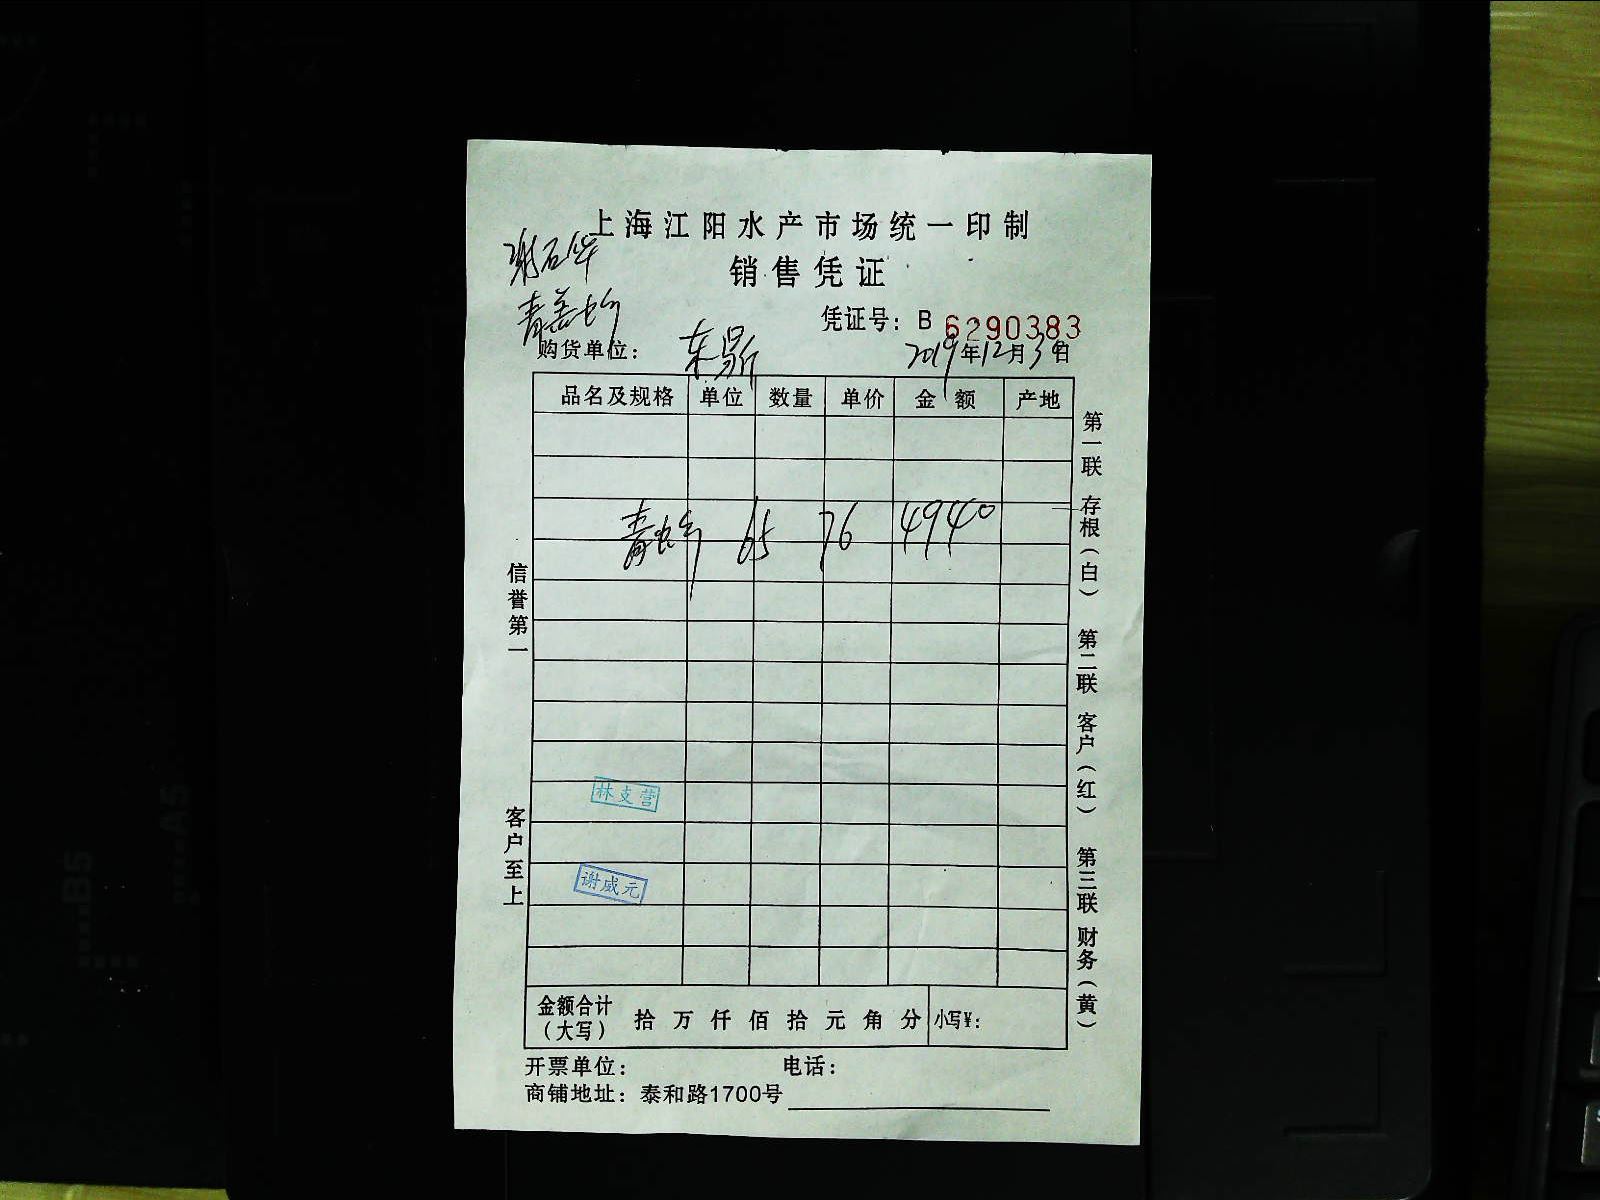 上海江阳水产市场统一印制
谢石华
销售凭证
青
凭证号：B 6290383
购货单位：东
2019年12月3日
品名及规格 单位 数量 单价 金额 产地
青 65 76 4940
信誉第一
客户至上
第一联 存根（白） 第二联 客户（红） 第三联 财务（黄）
林支营
谢威元
金额合计（大写） 拾 万 仟 佰 拾 元 角 分 小写¥：
开票单位： 电话：
商铺地址：泰和路1700号
B5
A5